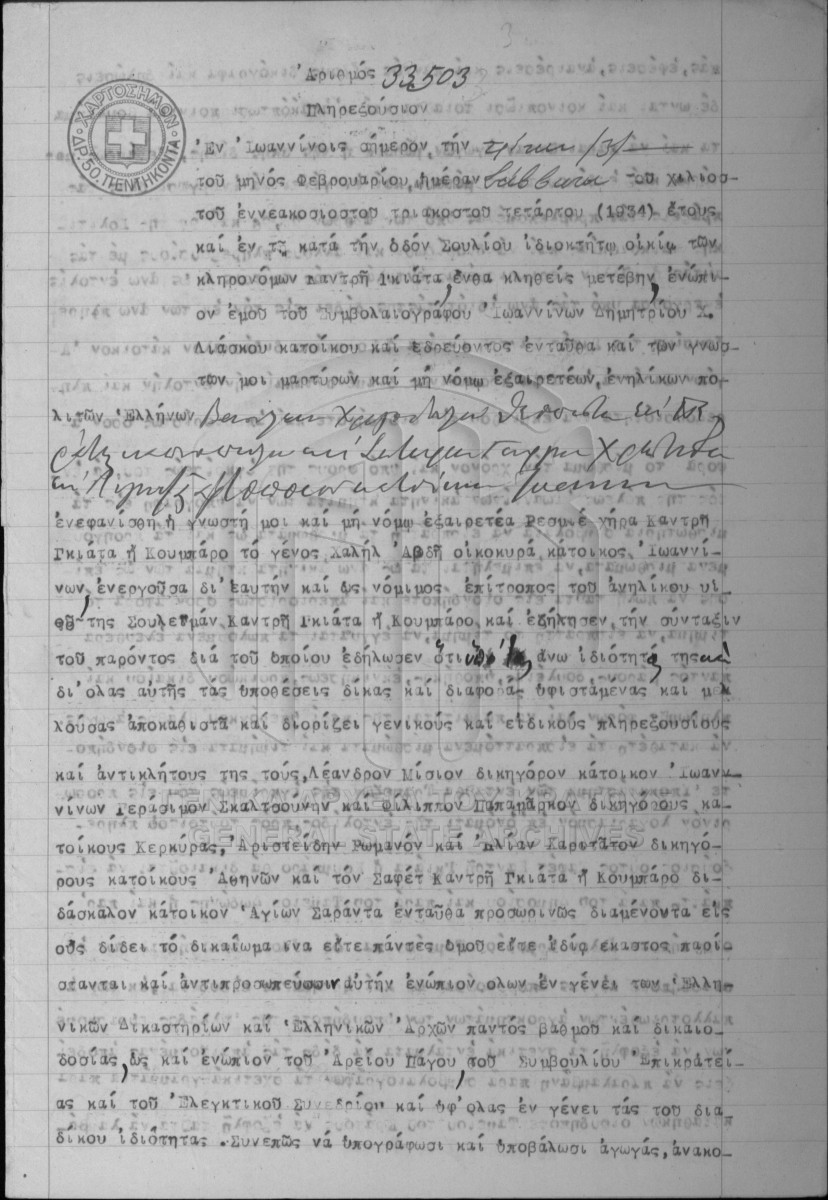 Ἀριθμός 33503
Πληρεξούσιον
ΧΑΡΤΟΣΗΜΟΝ
ΔΡ. 50. ΠΕΝΤΗΚΟΝΤΑ
Ἐν Ἰωαννίνοις σήμερον τήν τρίτην /3/
τοῦ μηνός Φεβρουαρίου, ἡμέραν Σάββατον τοῦ χιλιοσ-
τοῦ ἐννεακοσιοστοῦ τριακοστοῦ τετάρτου (1934) ἔτους
καί ἐν τῇ κατά τήν ὁδόν Σουλίου ἰδιοκτήτῳ οἰκίᾳ τῶν
κληρονόμων Καντρῆ Γκιάτα, ἔνθα κληθείς μετέβην, ἐνώπι-
ον ἐμοῦ τοῦ Συμβολαιογράφου Ἰωαννίνων Δημητρίου Χ.
Λιάσκου κατοίκου καί ἑδρεύοντος ἐνταῦθα καί τῶν γνωσ-
τῶν μοι μαρτύρων καί μή νόμῳ ἐξαιρετέων, ἐνηλίκων πο-
λιτῶν Ἑλλήνων
ἐνεφανίσθη ἡ γνωστή μοι καί μή νόμῳ ἐξαιρετέα Ρεσμιέ χήρα Καντρῆ
Γκιάτα ἤ Κουμπάρο τό γένος Χαλήλ Ἀβδῆ οἰκοκυρά κάτοικος Ἰωαννί-
νων, ἐνεργοῦσα δι' ἑαυτήν καί ὡς νόμιμος ἐπίτροπος τοῦ ἀνηλίκου υἱ-
οῦ της Σουλεϊμάν Καντρῆ Γκιάτα ἤ Κουμπάρο καί ἐζήτησεν τήν σύνταξιν
τοῦ παρόντος διά τοῦ ὁποίου ἐδήλωσεν ὅτι ὑφ' ἄνω ἰδιότητά της καί
δι' ὅλας αὐτῆς τάς ὑποθέσεις δίκας καί διαφοράς ὑφισταμένας καί μελ
λούσας ἀποκαθιστᾶ καί διορίζει γενικούς καί εἰδικούς πληρεξουσίους
καί ἀντικλήτους της τούς, Λέανδρον Μίσιον δικηγόρον κάτοικον Ἰωαν-
νίνων Γεράσιμον Σκαλτσούνην καί Φίλιππον Παπαμάρκον δικηγόρους κα-
τοίκους Κερκύρας, Ἀριστείδην Ρωμανόν καί Ἠλίαν Χαριτᾶτον δικηγό-
ρους κατοίκους Ἀθηνῶν καί τόν Σαφέτ Καντρῆ Γκιάτα ἤ Κουμπάρο δι-
δάσκαλον κάτοικον Ἁγίων Σαράντα ἐνταῦθα προσωρινῶς διαμένοντα εἰς
οὕς δίδει τό δικαίωμα ἵνα εἴτε πάντες ὁμοῦ εἴτε ἰδίᾳ ἕκαστος παρί-
στανται καί ἀντιπροσωπεύωσιν αὐτήν ἐνώπιον ὅλων ἐν γένει τῶν Ἑλλη-
νικῶν Δικαστηρίων καί Ἑλληνικῶν Ἀρχῶν παντός βαθμοῦ καί δικαιο-
δοσίας, ὡς καί ἐνώπιον τοῦ Ἀρείου Πάγου, τοῦ Συμβουλίου Ἐπικρατεί-
ας καί τοῦ Ἐλεγκτικοῦ Συνεδρίου καί ὑφ' ὅλας ἐν γένει τάς τοῦ δια-
δίκου ἰδιότητας. Συνεπῶς νά ὑπογράφωσι καί ὑποβάλωσι ἀγωγάς, ἀνακο-
GENERAL STATE ARCHIVES